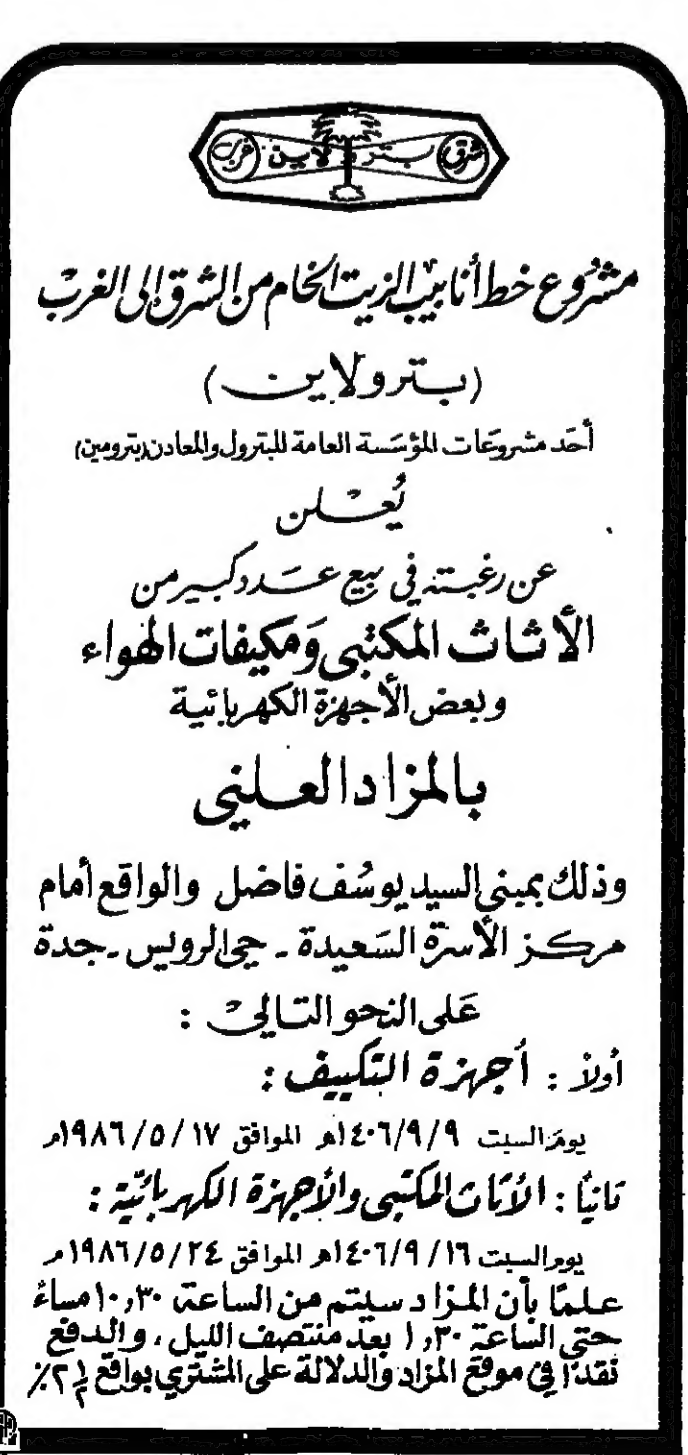 شرق بترولاين غرب
مشروع خط أنابيب الزيت الخام من الشرق إلى الغرب
(بترولاين)
أحد مشروعات المؤسسة العامة للبترول والمعادن (بترومين)
يُعلن
عن رغبته في بيع عدد كبير من
الأثاث المكتبي ومكيفات الهواء
وبعض الأجهزة الكهربائية
بالمزاد العلني
وذلك بمبنى السيد يوسُف فاضل والواقع أمام
مركز الأسرة السَعيدة - حي الرويس - جدة
عَلى النحو التالي :
أولاً : أجهزة التكييف :
يومَ السبت ١٤٠٦/٩/٩هـ الموافق ١٩٨٦/٥/١٧م
ثانياً : الأثاث المكتبي والأجهزة الكهربائيّة :
يوم السبت ١٤٠٦/٩/١٦هـ الموافق ١٩٨٦/٥/٢٤م
علمًا بأن المزاد سيتم من الساعة ١٠,٣٠ مساءً
حتى الساعة ١,٣٠ بعد منتصف الليل ، والدفع
نقدًا في موقع المزاد والدلالة على المشتري بواقع ٢½٪